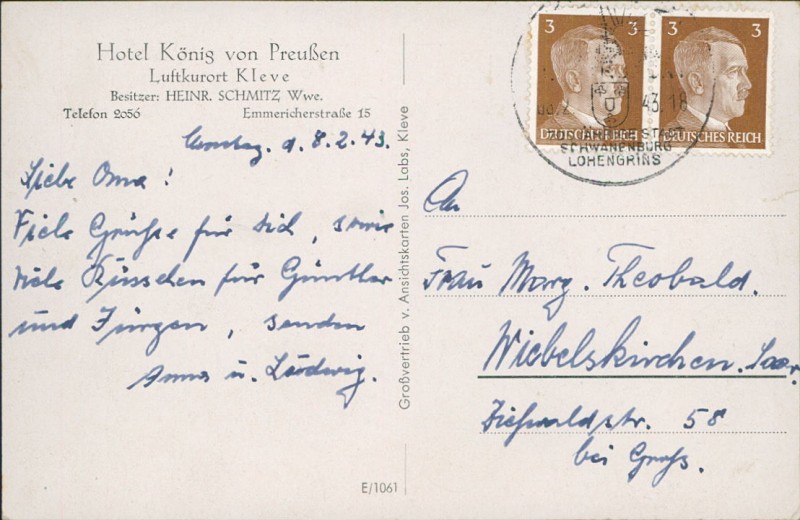 Hotel König von Preußen
Luftkurort Kleve
Besitzer: HEINR. SCHMITZ Wwe.
Telefon 2056 Emmericherstraße 15
Montag, d. 8.2.43.
Liebe Oma!
Viele Grüße für dich, sowie
viele Küsschen für Günther
und Jürgen, senden
Anna u. Ludwig.
Großvertrieb v. Ansichtskarten Jos. Labs, Kleve
E/1061
3 3
DEUTSCHES REICH
3 3
DEUTSCHES REICH
43.18
SCHWANENBURG
LOHENGRINS
An
Frau Marg. Theobald.
Wiebelskirchen. Saar.
Ziehwaldstr. 58
bei Groß.